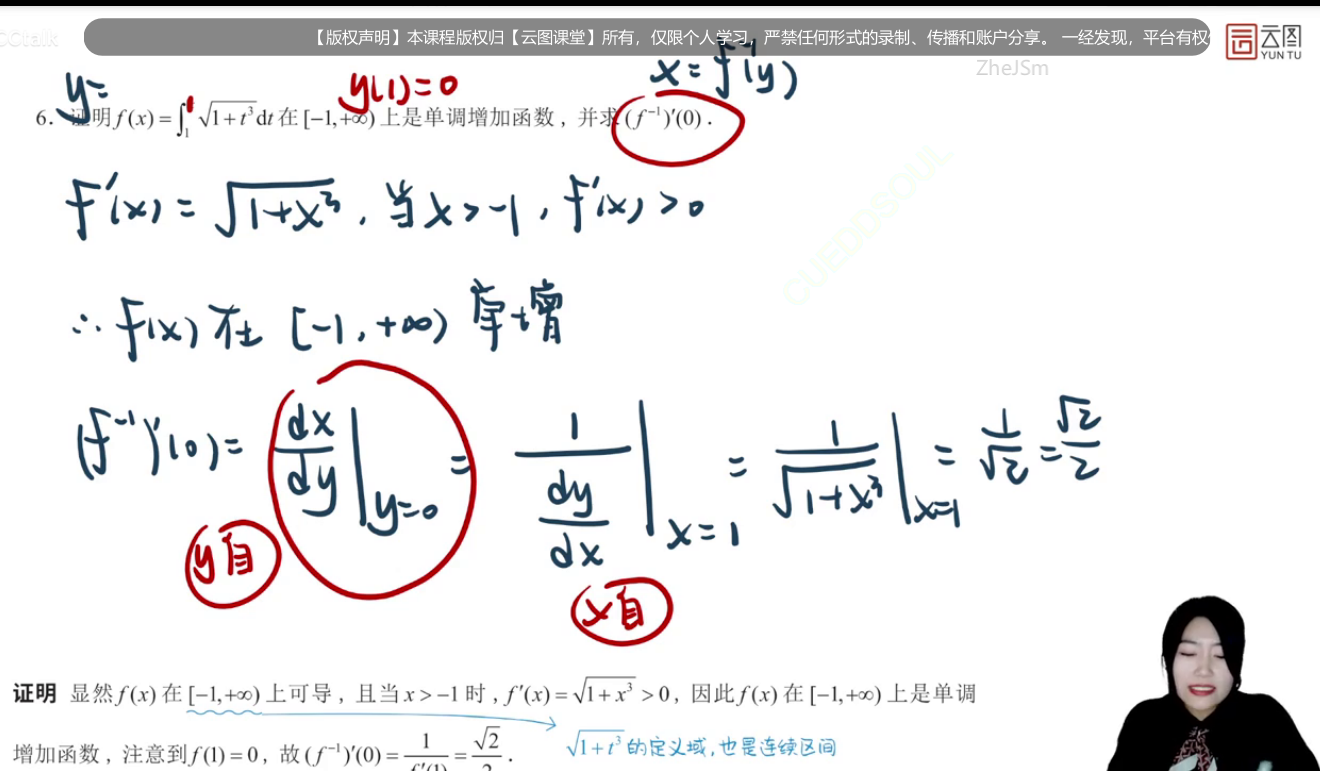 CCtalk
【版权声明】本课程版权归【云图课堂】所有，仅限个人学习，严禁任何形式的录制、传播和账户分享。 一经发现，平台有权
云图
YUN TU
ZheJSm
y= y(1)=0 x=f⁻¹(y)
6. 证明f(x)=∫₁ˣ√(1+t³)dt在[−1,+∞)上是单调增加函数，并求(f⁻¹)′(0).
CUEDDSOUL
f′(x)=√(1+x³), 当x>-1, f′(x)>0
∴ f(x)在 [-1,+∞) 单增
(f⁻¹)′(0)= dx/dy |y=0 = 1/(dy/dx) |x=1 = 1/√(1+x³) |x=1 = 1/√2 = √2/2
y自
x自
证明 显然f(x)在[−1,+∞)上可导，且当x>−1时，f′(x)=√(1+x³)>0，因此f(x)在[−1,+∞)上是单调
增加函数，注意到f(1)=0，故(f⁻¹)′(0)=1/f′(1)=√2/2.
√(1+t³)的定义域,也是连续区间